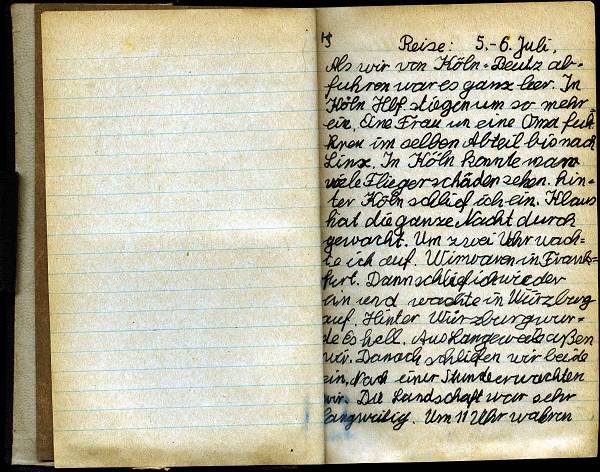 15
Reise: 5.-6. Juli.
Als wir von Köln-Deutz ab-
fuhren war es ganz leer. In
Köln Hbf stiegen um so mehr
ein. Eine Frau un eine Oma fuh-
ren im selben Abteil bis nach
Linz. In Köln konnte wann
viele Fliegerschäden sehen. Hin-
ter Köln schlief ich ein. Klaus
hat die ganze Nacht durch
gewacht. Um zwei Uhr wach-
te ich auf. Wir waren in Frank-
furt. Dann schlief ich wieder
ein und wachte in Würzburg
auf. Hinter Würzburg wur-
de es hell. Aus Langeweile aßen
wir. Danach schliefen wir beide
ein. Nach einer Stunde erwachten
wir. Die Landschaft war sehr
langweilig. Um 11 Uhr wahren